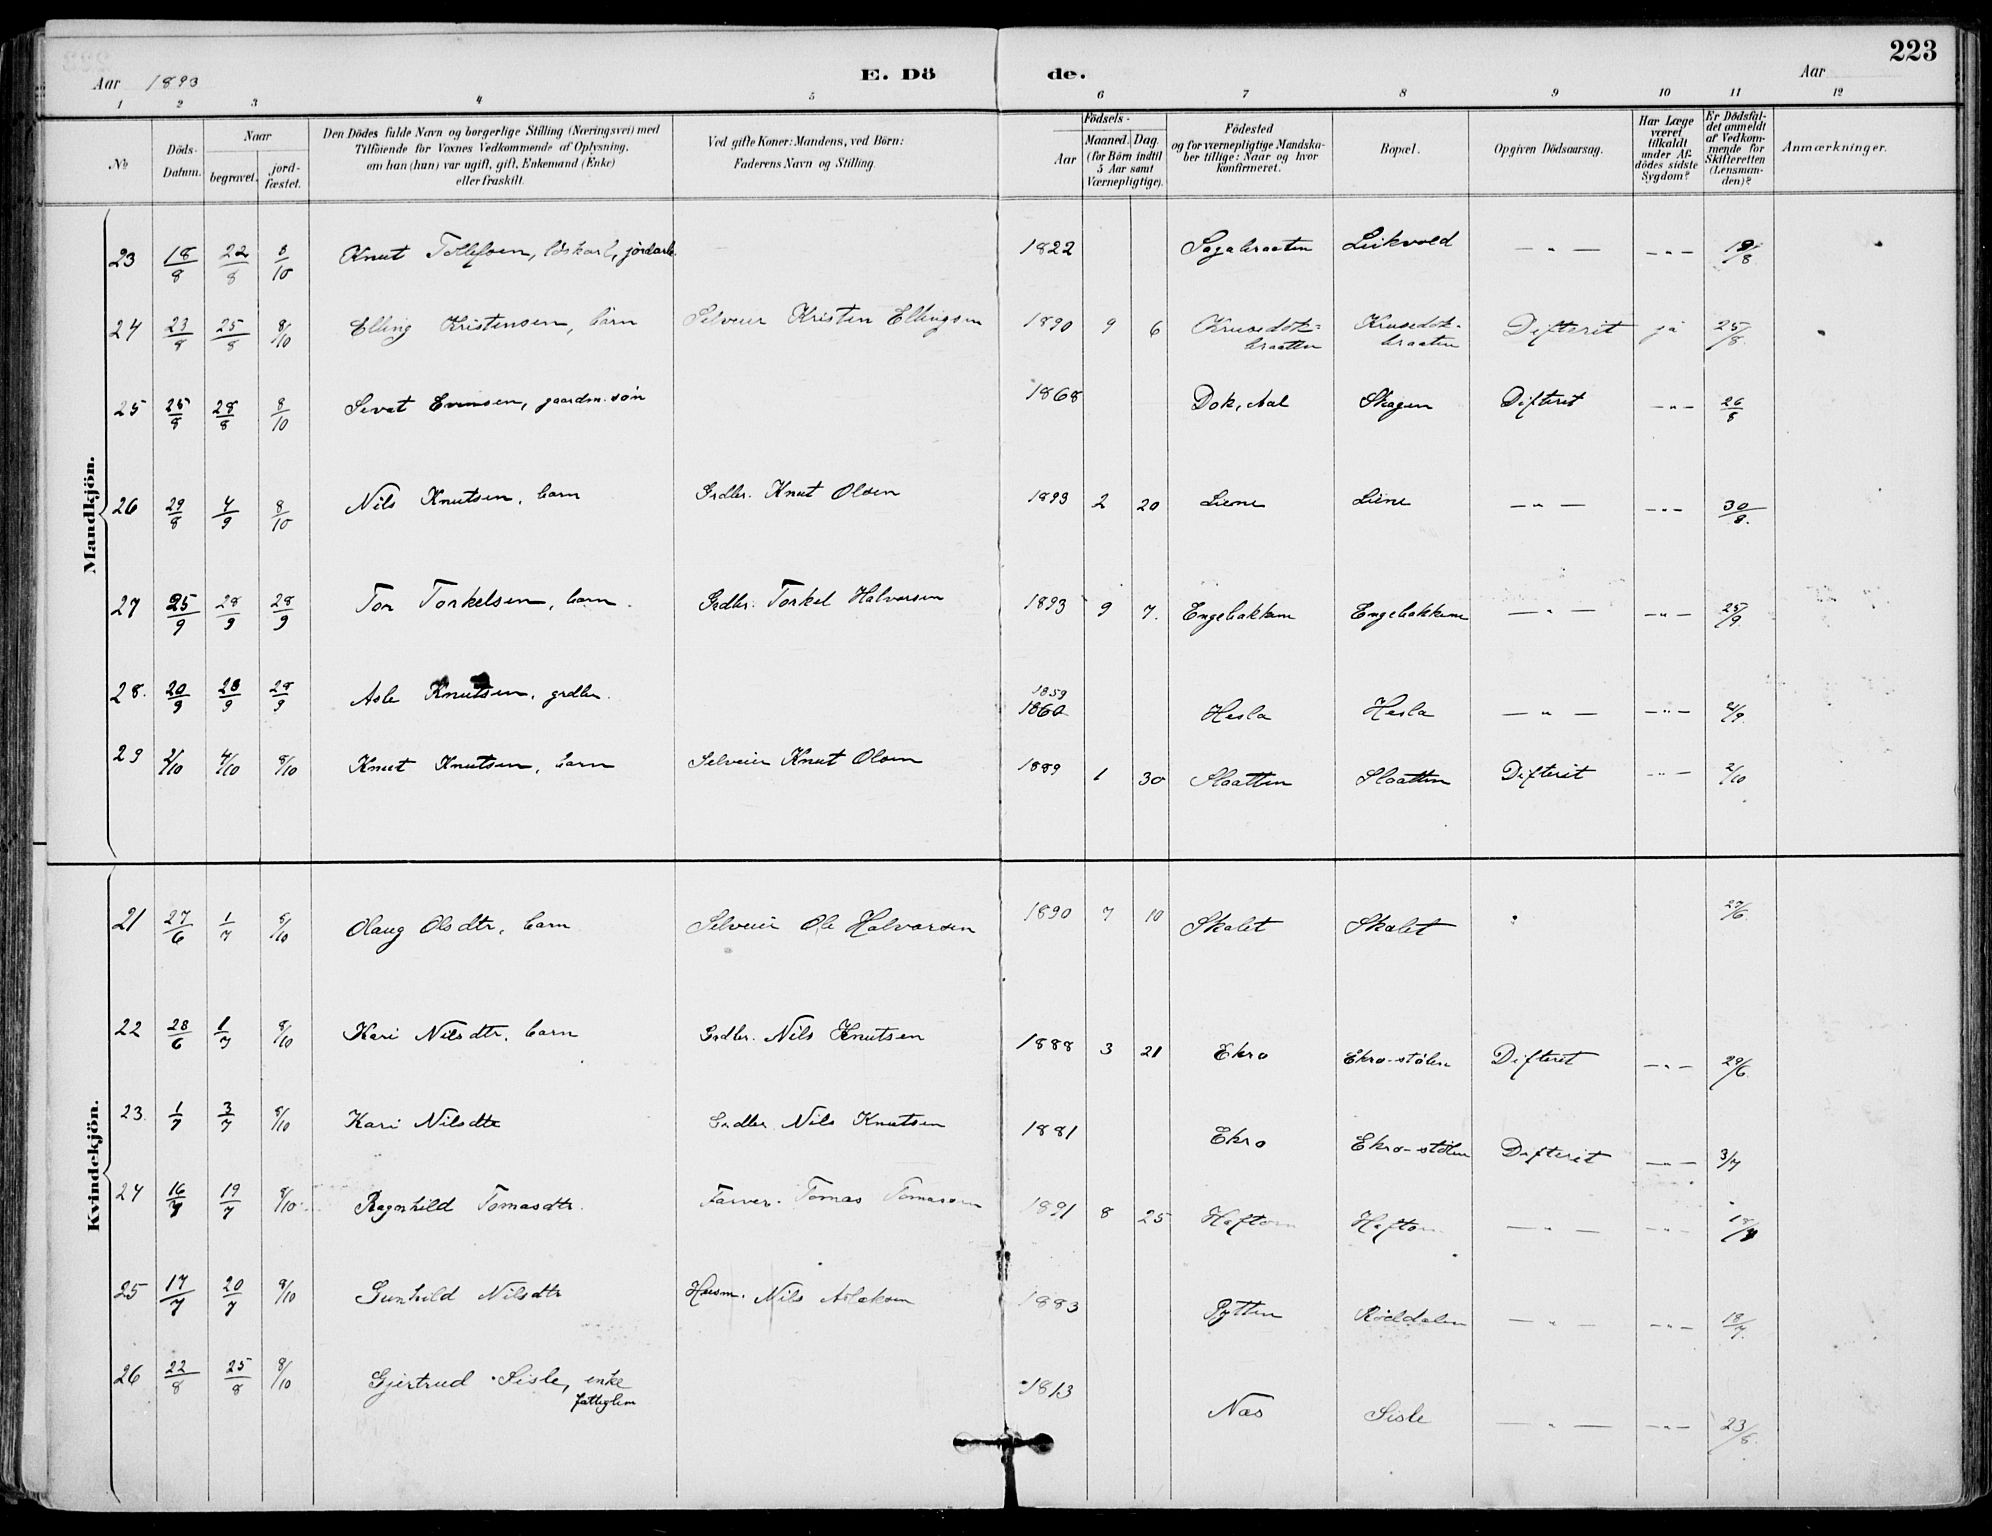 223
Aar 1893 E. Dö de. Aar
1 2 3 4 5 6 7 8 9 10 11 12
№
Döds-Datum.
Naar
begravet.
jordfæstet.
Den Dödes fulde Navn og borgerlige Stilling (Næringsvei) med
Tilföiende for Voxnes Vedkommende af Oplysning,
om han (hun) var ugift, gift, Enkemand (Enke)
eller fraskilt.
Ved gifte Koner: Mandens, ved Börn:
Faderens Navn og Stilling.
Födsels-
Aar Maaned. Dag.
(for Börn indtil
5 Aar samt
Værnepligtige).
Födested
og for værnepligtige Mandska-
ber tillige: Naar og hvor
konfirmeret.
Bopæl.
Opgiven Dödsaarsag.
Har Læge
været
tilkaldt
under Af-
dödes sidste
Sygdom?
Er Dödsfal-
det anmeldt
af Vedkom-
mende for
Skifteretten
(Lensman-
den)?
Anmærkninger.
Mandkjön.
23 18/8 22/8 8/10 Knut Tollefsen, löskarl, jordarb. 1822 Sagabraaten Liikvold — " — — " — 19/8
24 23/8 25/8 8/10 Elling Kristensen, barn Selveier Kristen Ellingsen 1890 9 6 Krusedok=braaten Krusedok-braaten Difterit ja 25/8
25 25/8 28/8 8/10 Sevat Evensen, gaardm. sön 1868 Dok, Aal Skagen Difterit — " — 26/8
26 29/8 4/9 8/10 Nils Knutsen, barn Grdbr. Knut Olsen 1893 2 20 Liene Liene — " — — " — 30/8.
27 25/9 28/9 28/9 Tor Torkelsen, barn. Grdbr. Torkel Halvorsen 1893 9 7. Engebakken Engebakken — " — — " — 25/9.
28. 20/9 28/9 28/9 Asle Knutsen, grdbr. 1859 1860 Hesla Hesla — " — — " — 21/9.
29 2/10 4/10 8/10 Knut Knutsen, barn Selveier Knut Olsen 1889 1 30 Slaatten Slaatten Difterit — " — 2/10
Kvindekjön.
21 27/6 1/7 8/10 Olaug Olsdtr, barn Selveier Ole Halvorsen 1890 7 10 Skalet Skalet 29/6.
22 28/6 1/7 8/10 Kari Nilsdtr, barn Grdbr. Nils Knutsen 1888 3 21 Ekro Ekro-stölen Difterit — " — 29/6.
23. 1/7 3/7 8/10 Kari Nilsdtr Grdbr. Nils Knutsen 1881 Ekro Ekro-stölen Difterit — " — 3/7
24 16/7 19/7 8/10 Ragnhild Tomasdtr. Farver. Tomas Tomasen 1891 8 25 Haftorn Haftorn — " — — " — 18/7
25 17/7 20/7 8/10 Gunhild Nilsdtr Husm. Nils Aslaksen 1883 Pytten Röeldalen — " — — " — 18/7.
26 22/8 25/8 8/10 Gjertrud Sisle, enke
fattiglem 1813 Næs Sisle — " — — " — 23/8.